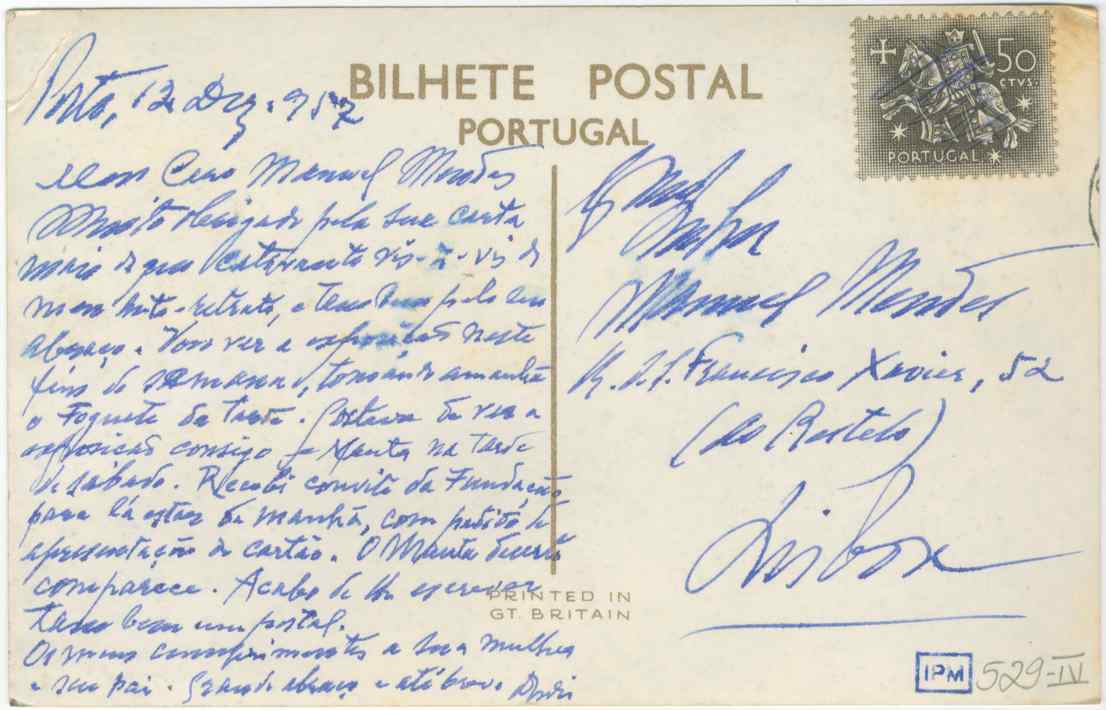 BILHETE POSTAL
PORTUGAL
50
CTVS.
PORTUGAL
Porto, 12 Dez. 957
Meu Caro Manuel Mendes
Muito obrigado pela sua carta
mais do que vis-à-vis do
meu auto-retrato, e também pelo seu
abraço. Vou ver a exposição neste
fim de semana, tomando amanhã
o Foguete da tarde. Gostava de ver a
exposição consigo e Manta na tarde
de sábado. Recebi convite da Fundação
para lá estar de manhã, com pedido de
apresentação do cartão. O Manta decerto
comparece. Acabo de lhe escrever
também um postal.
Os meus cumprimentos a sua mulher
e seu pai. Grande abraço e até breve
Manuel Mendes
R. S. Francisco Xavier, 52
(ao Restelo)
Lisboa
PRINTED IN
GT. BRITAIN
IPM 529-IV